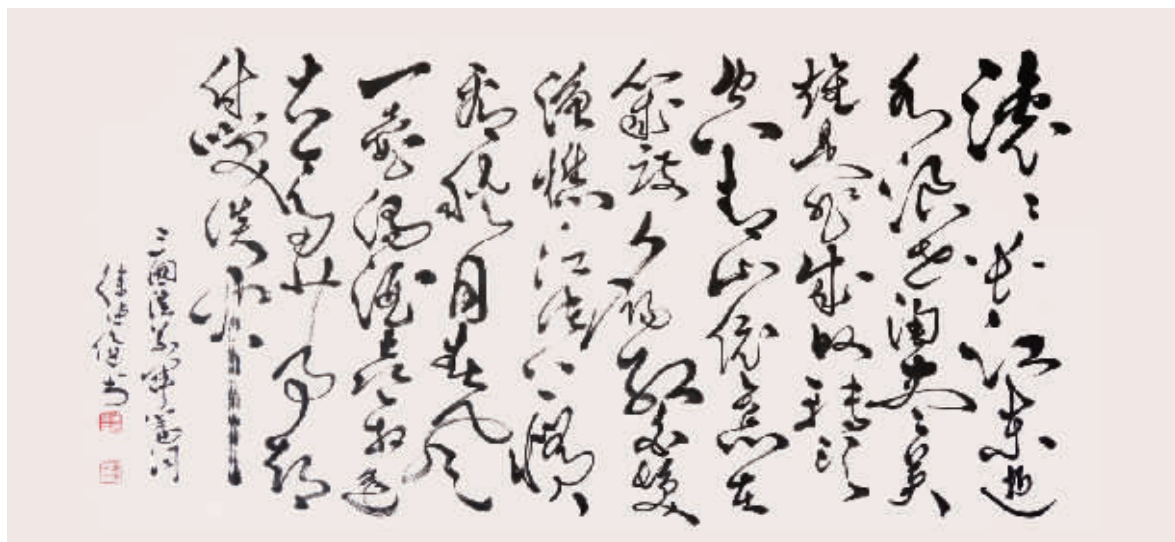 滚滚長江東逝
水浪花淘尽英
雄是非成敗轉頭
空青山依舊在
幾度夕陽紅白髮
漁樵江渚上慣
看秋月春風
一壺濁酒喜相逢
古今多少事都
付笑談中
三國演義詞
徐書